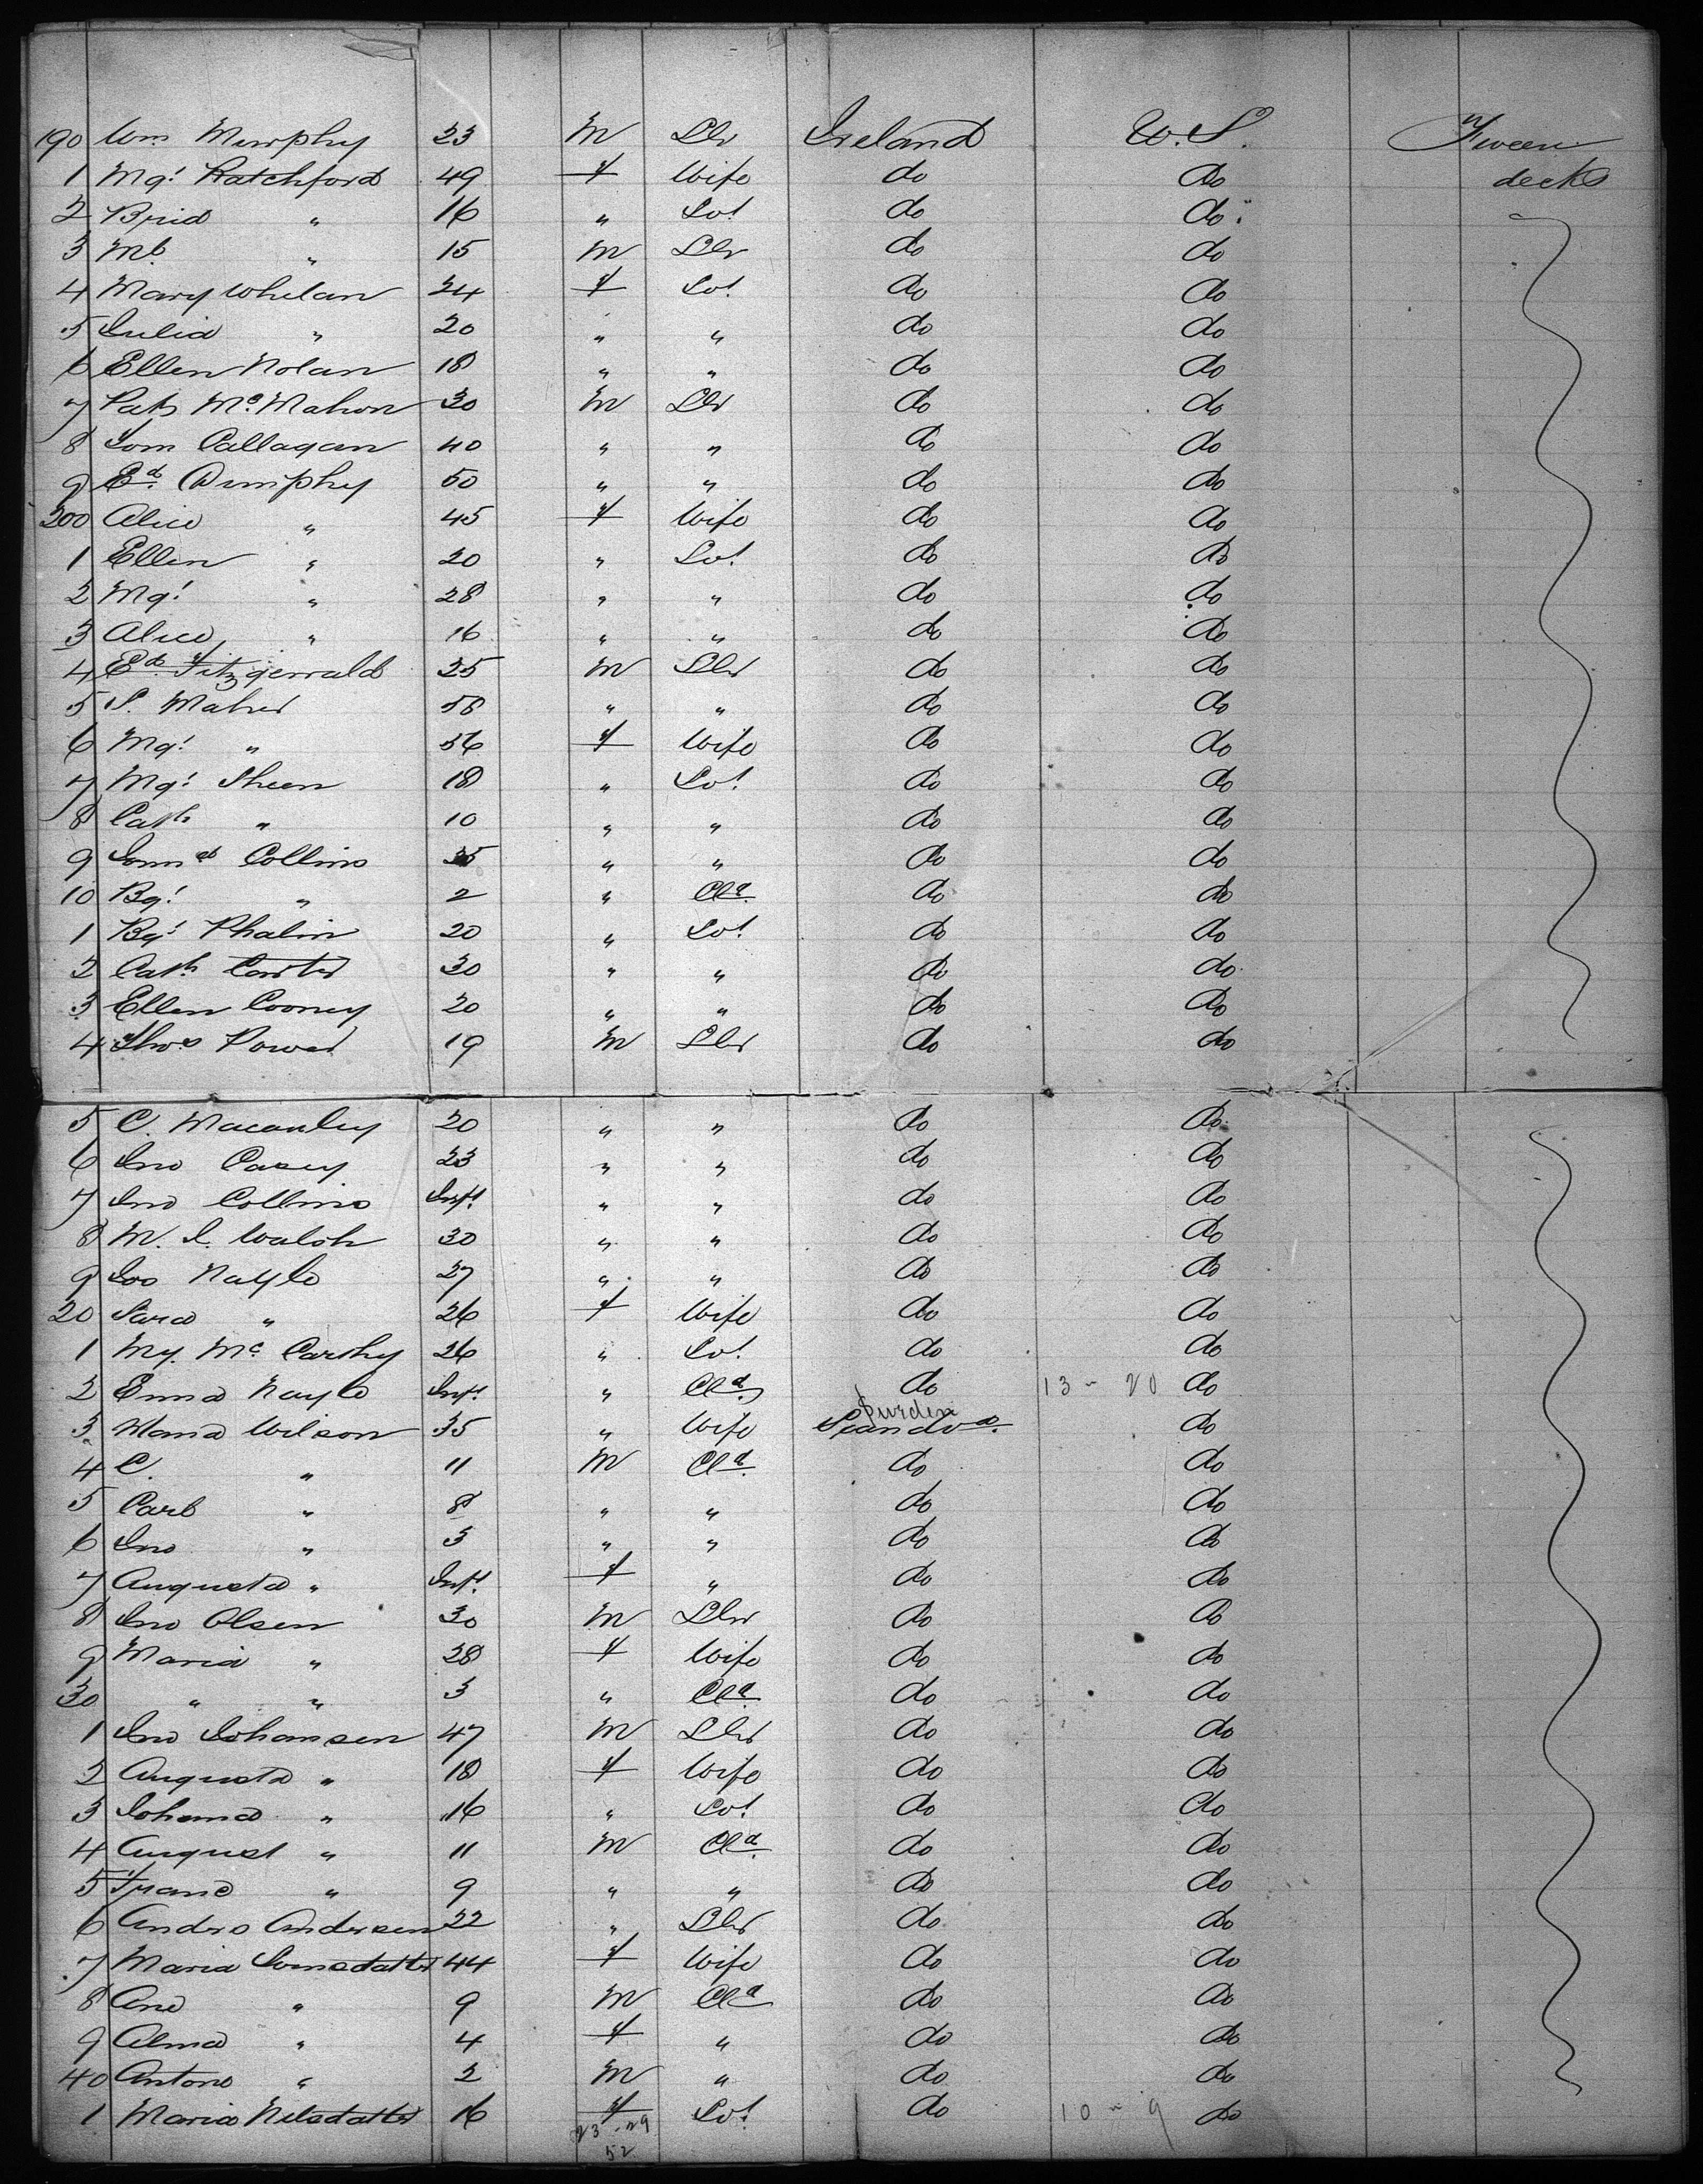 190 Wm Murphy 23 M Lbr Ireland U.S. Tween
1 Mgt Ratchford 49 f Wife do do decks
2 Brid " 16 " Spt do do
3 Ml " 15 M Lbr do do
4 Mary Whelan 24 f Spt do do
5 Julia " 20 " " do do
6 Ellen Nolan 18 " " do do
7 Patk McMahon 30 M Lbr do do
8 Tom Callagan 40 " " do do
9 Ed Dunphy 50 " " do do
200 Alice " 45 f Wife do do
1 Ellen " 20 " Spt do do
2 Mgt " 28 " " do do
3 Alice " 16 " " do do
4 Ed Fitzgerrald 25 M Lbr do do
5 S. Maher 58 " " do do
6 Mgt " 56 f Wife do do
7 Mgt Sheen 18 " Spt do do
8 Cath " 10 " " do do
9 Collins 35 " " do do
10 Bgt " 2 " Cld do do
1 Bgt Phalin 20 " Spt do do
2 Cath Carter 30 " " do do
3 Ellen Cooney 20 " " do do
4 Thos Power 19 M Lbr do do
5 C. Macauley 20 " " do do
6 Jno Casey 23 " " do do
7 Jno Collins Inft " " do do
8 M. J. Walsh 30 " " do do
9 Jos Nagle 27 " " do do
20 Sara " 26 f Wife do do
1 My. Mc Carthy 26 " Spt do do
2 Emma Nagle Inft " Cld do 13 - 20 do
Sweden
3 Maria Wilson 35 " Wife Scandva. do
4 C. " 11 M Cld do do
5 Carl " 8 " " do do
6 Jno " 3 " " do do
7 Augusta " Inft f " do do
8 Jno Olsen 30 M Lbr do do
9 Maria " 28 f Wife do do
30 " " 3 " Cld do do
1 Jno Johansen 47 M Lbr do do
2 Augusta " 18 f Wife do do
3 Johana " 16 " Spt do do
4 August " 11 M Cld do do
5 Frans " 9 " " do do
6 Anders Andersen 22 " Lbr do do
7 Maria Jonsdatter 44 f Wife do do
8 " 9 M Cld do do
9 Alma " 4 f " do do
40 Antone " 2 M " do do
1 Maria Nilsdatter 16 f Spt do 10 - 9 do
23 - 29
52